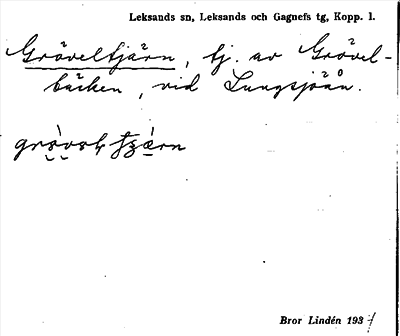 Leksands sn, Leksands och Gagnefs tg, Kopp. l.
Gräveltjärn, tj. av Grävel-
bäcken, vid Lungsjöån.
Bror Lindén 193